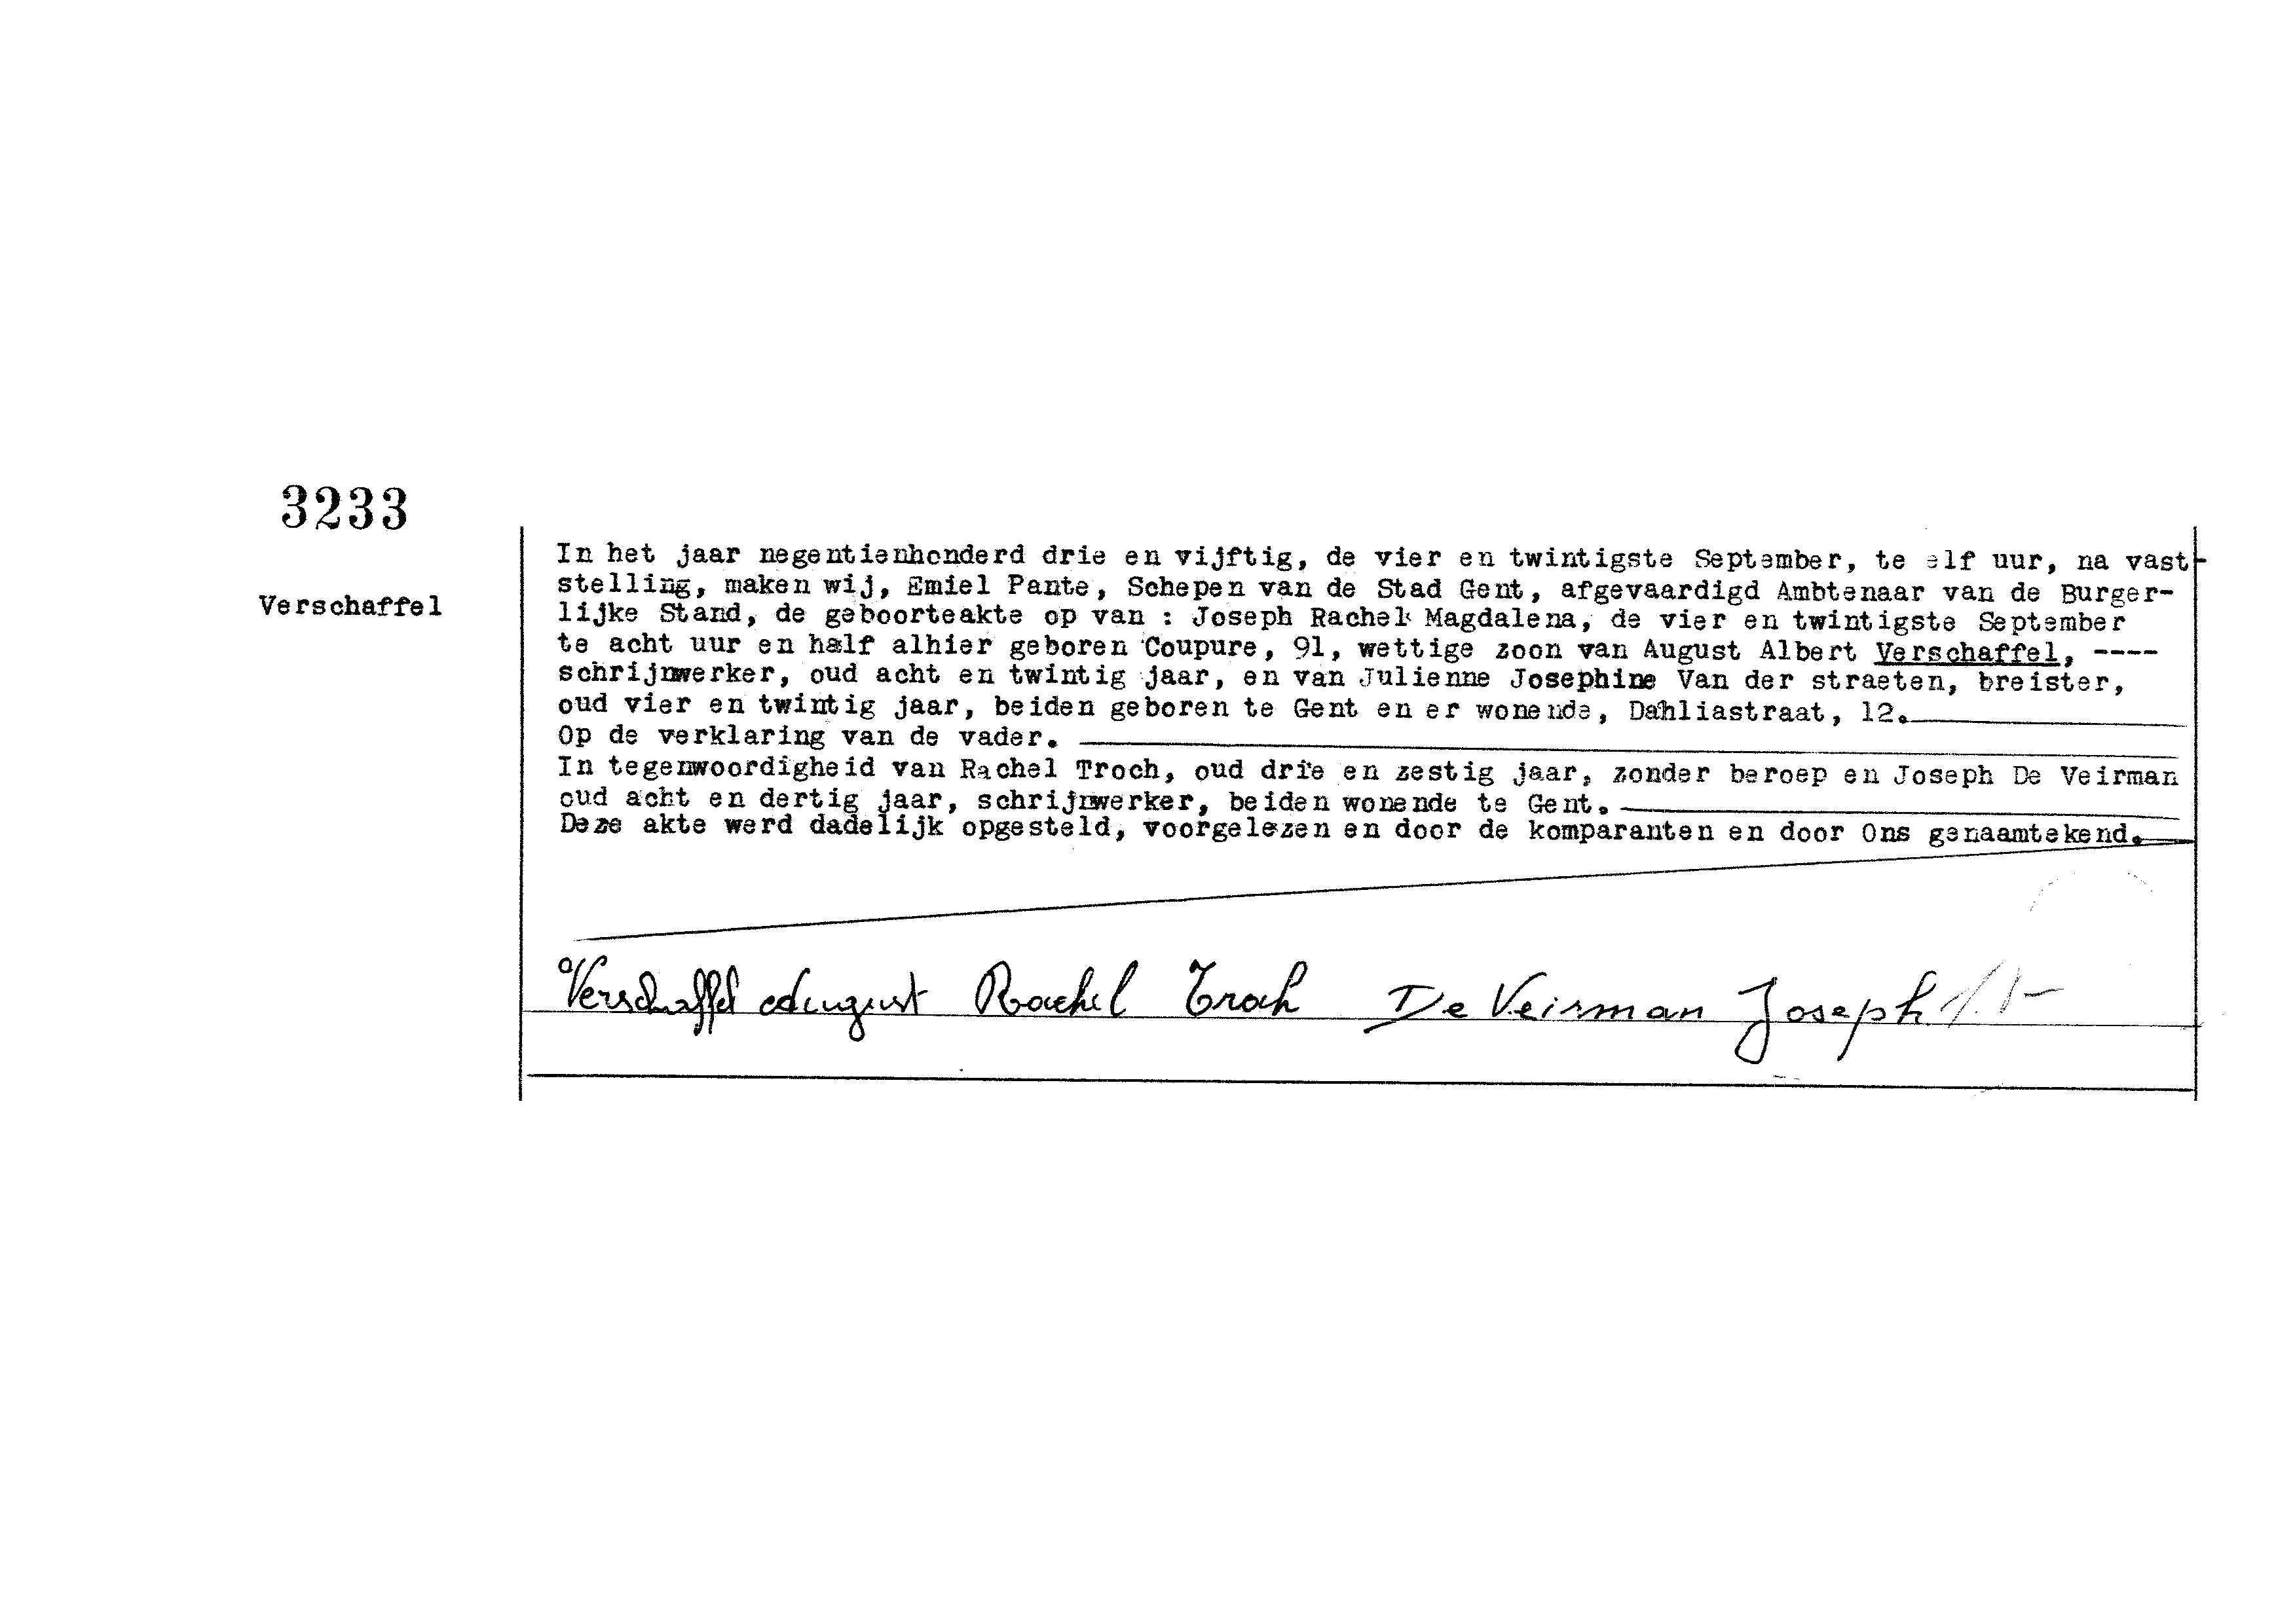 3233
Verschaffel
In het jaar negentienhonderd drie en vijftig, de vier en twintigste September, te elf uur, na vast-
stelling, maken wij, Emiel Pante, Schepen van de Stad Gent, afgevaardigd Ambtenaar van de Burger-
lijke Stand, de geboorteakte op van : Joseph Rachel Magdalena, de vier en twintigste September
te acht uur en half alhier geboren Coupure, 91, wettige zoon van August Albert Verschaffel, ----
schrijnwerker, oud acht en twintig jaar, en van Julienne Josephine Van der straeten, breister,
oud vier en twintig jaar, beiden geboren te Gent en er wonende, Dahliastraat, 12.
Op de verklaring van de vader.
In tegenwoordigheid van Rachel Troch, oud drie en zestig jaar, zonder beroep en Joseph De Veirman
oud acht en dertig jaar, schrijnwerker, beiden wonende te Gent.
Deze akte werd dadelijk opgesteld, voorgelezen en door de komparanten en door Ons genaamtekend.
Verschaffel August Rachel Troch De Veirman Joseph